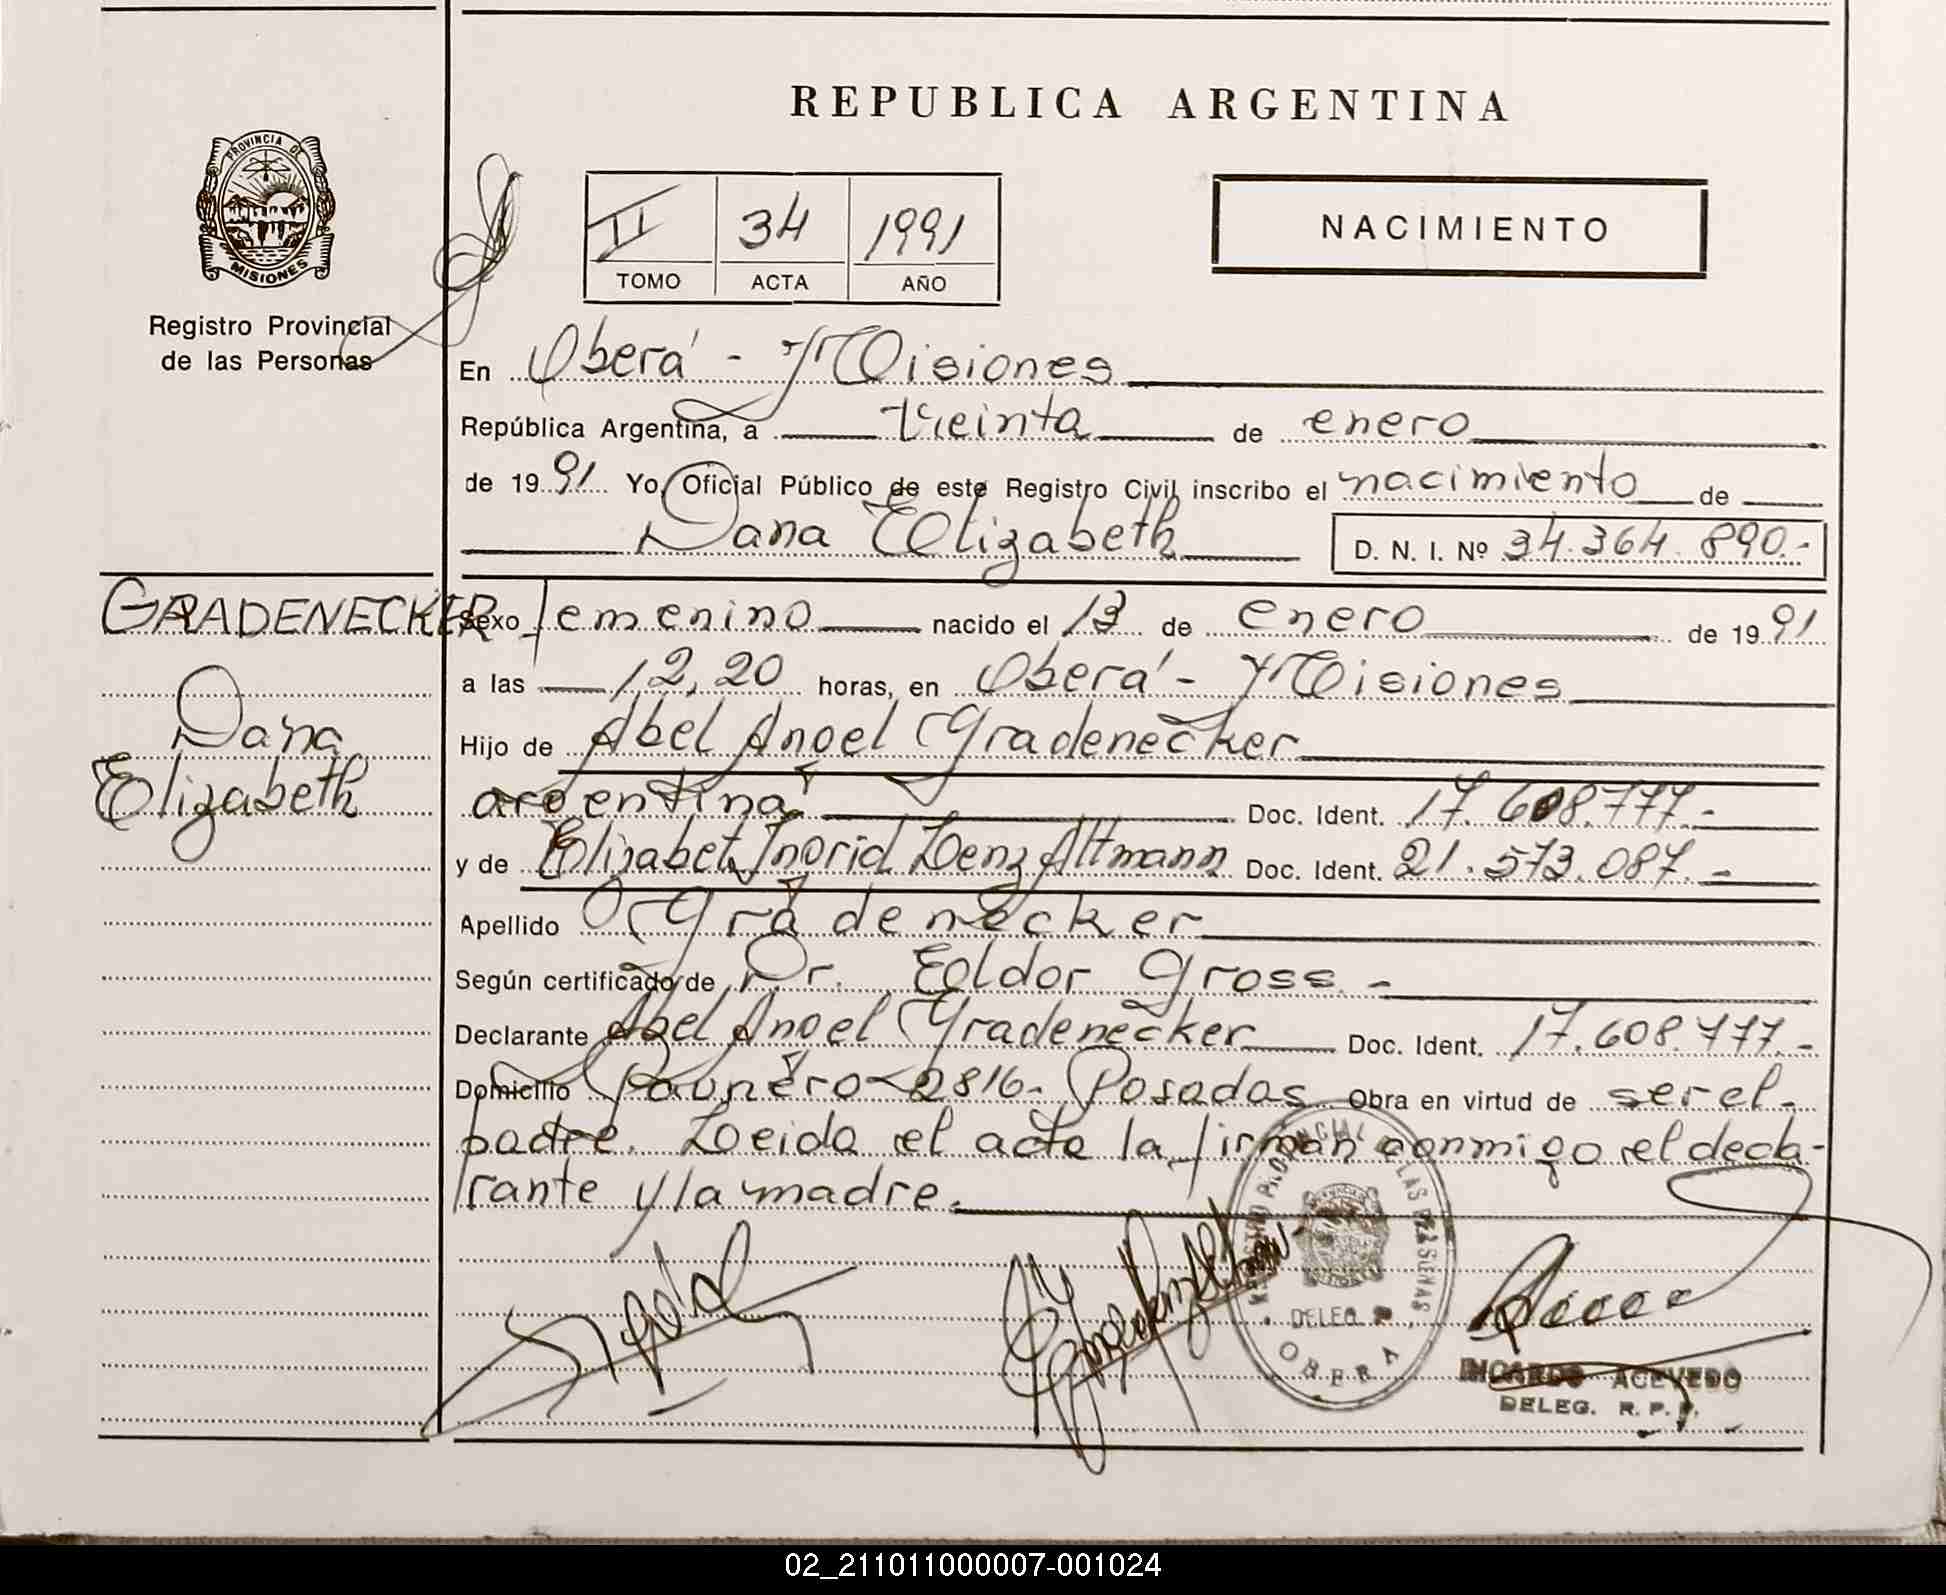 REPUBLICA ARGENTINA
PROVINCIA DE
MISIONES
Registro Provincial
de las Personas
II 34 1991
TOMO ACTA AÑO
NACIMIENTO
En Oberá - Misiones
República Argentina, a treinta de enero
de 1991 Yo, Oficial Público de este Registro Civil inscribo el nacimiento de
Dana Elizabeth D. N. I. Nº 34.364.890.-
GRADENECKER
Dana
Elizabeth
Sexo femenino nacido el 13 de enero de 1991
a las 12,20 horas, en Oberá - Misiones
Hijo de Abel Angel Gradenecker
argentina Doc. Ident. 17.608.777.-
y de Elizabet Ingrid Lenz Altmann Doc. Ident. 21.573.087.-
Apellido Gradenecker
Según certificado de Dr. Eldor Gross.-
Declarante Abel Angel Gradenecker Doc. Ident. 17.608.777.-
Domicilio Paunero 2816- Posadas Obra en virtud de ser el
padre. Leida el acta la firman conmigo el decla-
rante y la madre.
DELEG.
OBERA
RICARDO ACEVEDO
DELEG. R. P. P.
02_211011000007-001024